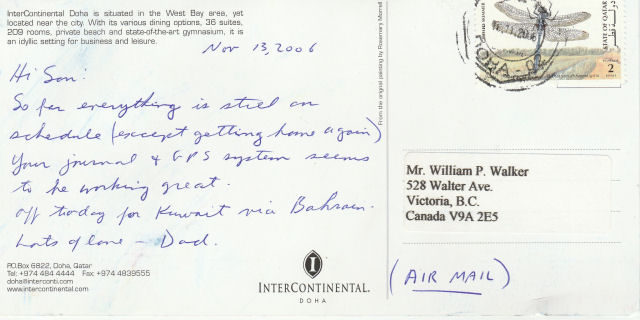 InterContinental Doha is situated in the West Bay area, yet
located near the city. With its various dining options, 36 suites,
209 rooms, private beach and state-of-the-art gymnasium, it is
an idyllic setting for business and leisure.
Nov 13, 2006
Hi Son:
So far everything is still on
schedule (except getting home again)
Your journal & GPS system seems
to be working great.
Off today for Kuwait via Bahrain.
Lots of love - Dad.
P.O.Box 6822, Doha, Qatar
Tel: +974 484 4444 Fax +974 4839555
doha@interconti.com
www.intercontinental.com
INTERCONTINENTAL.
DOHA
From the original painting by Rosemary
STATE OF QATAR
2
DOHA
Mr. William P. Walker
528 Walter Ave.
Victoria, B.C.
Canada V9A 2E5
(AIR MAIL)